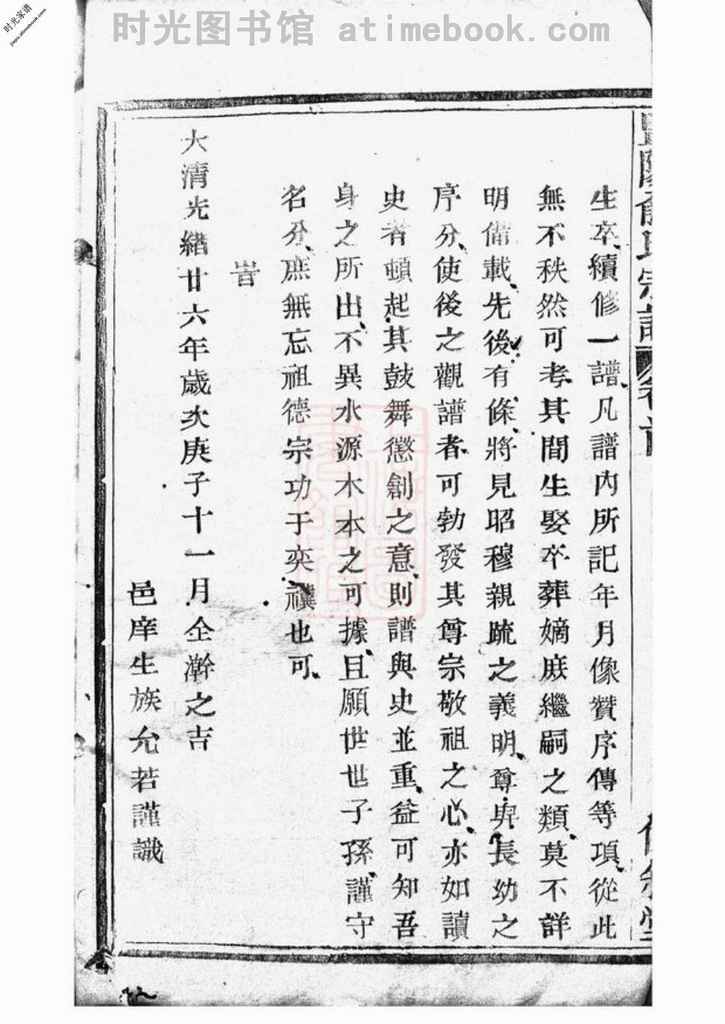 时光图书馆 atimebook.com
时光家谱
生卒續修一譜凡譜內所記年月像贊序傳等項從此
無不秩然可考其間生娶卒葬嫡庶繼嗣之類莫不詳
明備載先後有條將見昭穆親疏之義明尊卑長幼之
序分使後之觀譜者可勃發其尊宗敬祖之心亦如讀
史者頓起其鼓舞懲創之意則譜與史並重益可知吾
身之所出不異水源木本之可據且願世世子孫謹守
名分庶無忘祖德宗功于奕禩也可
旹
大清光緒廿六年歲次庚子十一月仝澣之吉
邑庠生族允若謹識